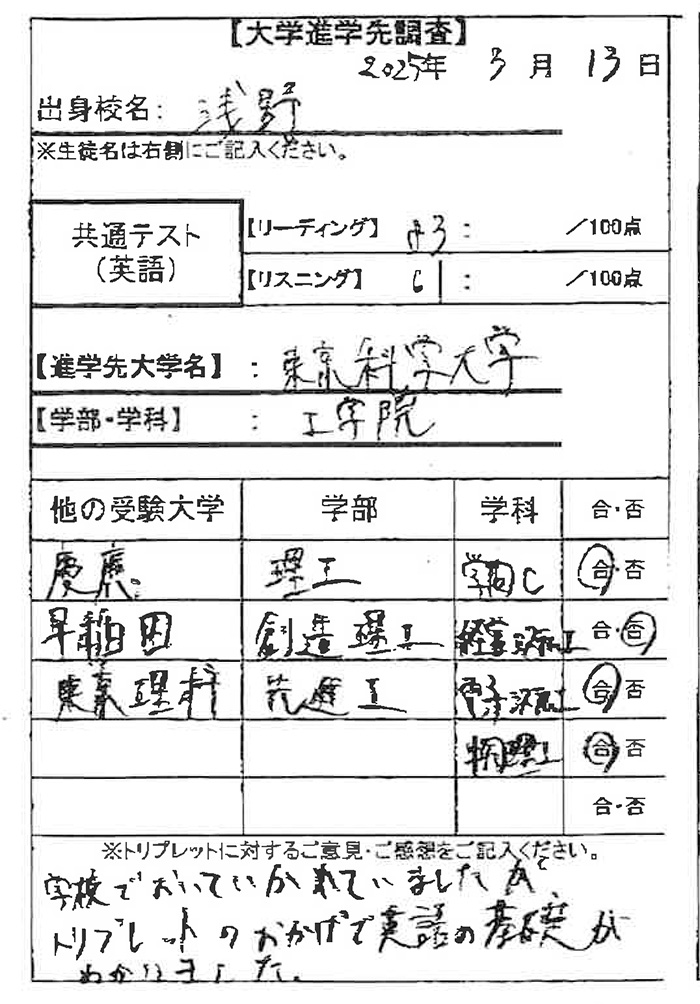 【大学進学先調査】
2025年 3月 13日
出身校名： 浅野
※生徒名は右側にご記入ください。
共通テスト
（英語）
【リーディング】 83： ／100点
【リスニング】 61： ／100点
【進学先大学名】 ： 東京科学大学
【学部・学科】 ： 工学院
他の受験大学 学部 学科 合・否
慶應 理工 学問C 合・否
早稲田 創造理工 経営 工 合・否
東京理科 先進工 電子 工 合・否
物理工 合・否
合・否
※トリプレットに対するご意見・ご感想をご記入ください。
学校でおいていかれていましたが、
トリプレットのおかげで英語の基礎が
わかりました。